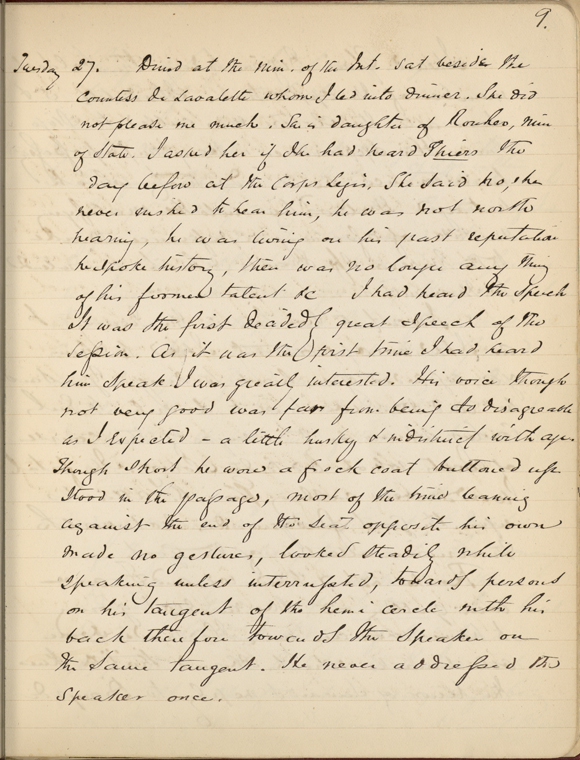 9.
Tuesday 27. Dined at the Min. of the Int. sat beside the
Countess de Lavalette whom I led into dinner. She did
not please me much. She is daughter of Rouher, Min
of State. I asked her if she had heard Thiers the
day before at the Corps Legis. She said no, she
never wished to hear him, he was not worth
hearing, he was living on his past reputation
he spoke history, there was no longer any thing
of his former talent &c I had heard the speech
It was the first decidedly great speech of the
session. As it was the first time I had heard
him speak I was greatly interested. His voice though
not very good was far from being so disagreeable
as I expected - a little husky & indistinct with age.
Though short he wore a frock coat buttoned up
stood in the passage, most of the time leaning
against the end of the seat opposite his own
made no gestures, looked steadily while
speaking unless interrupted, towards persons
on his tangent of the hemi circle with his
back therefore towards the speaker on
the same tangent. He never addressed the
speaker once.